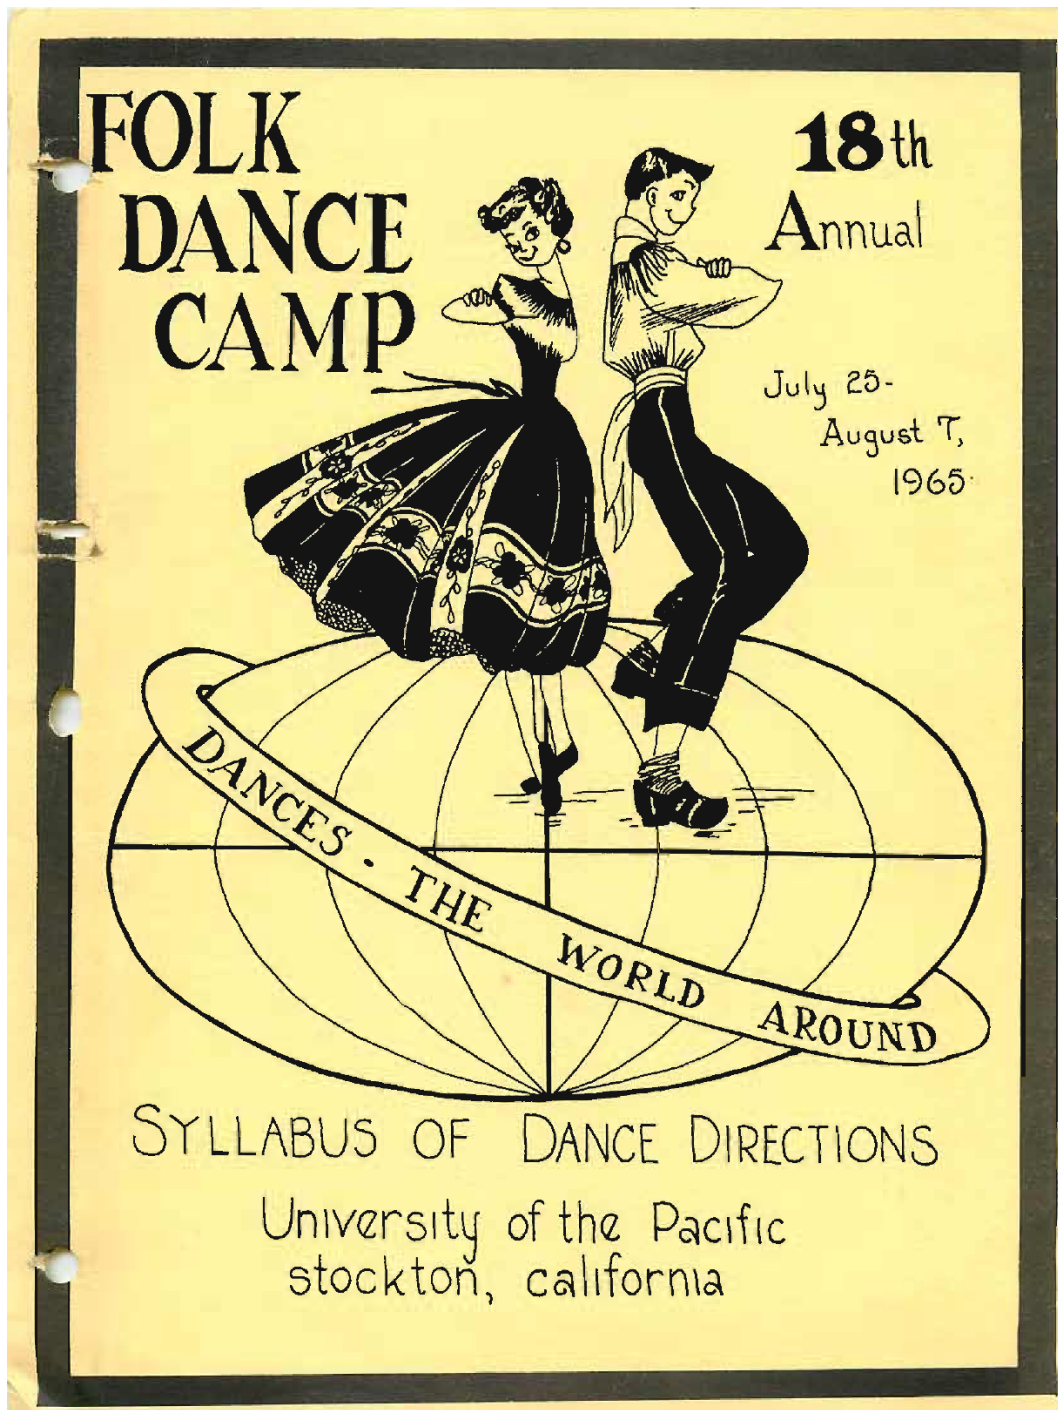 FOLK
DANCE
CAMP
18th
Annual
July 25-
August 7,
1965
DANCES - THE WORLD AROUND
SYLLABUS OF DANCE DIRECTIONS
University of the Pacific
stockton, california